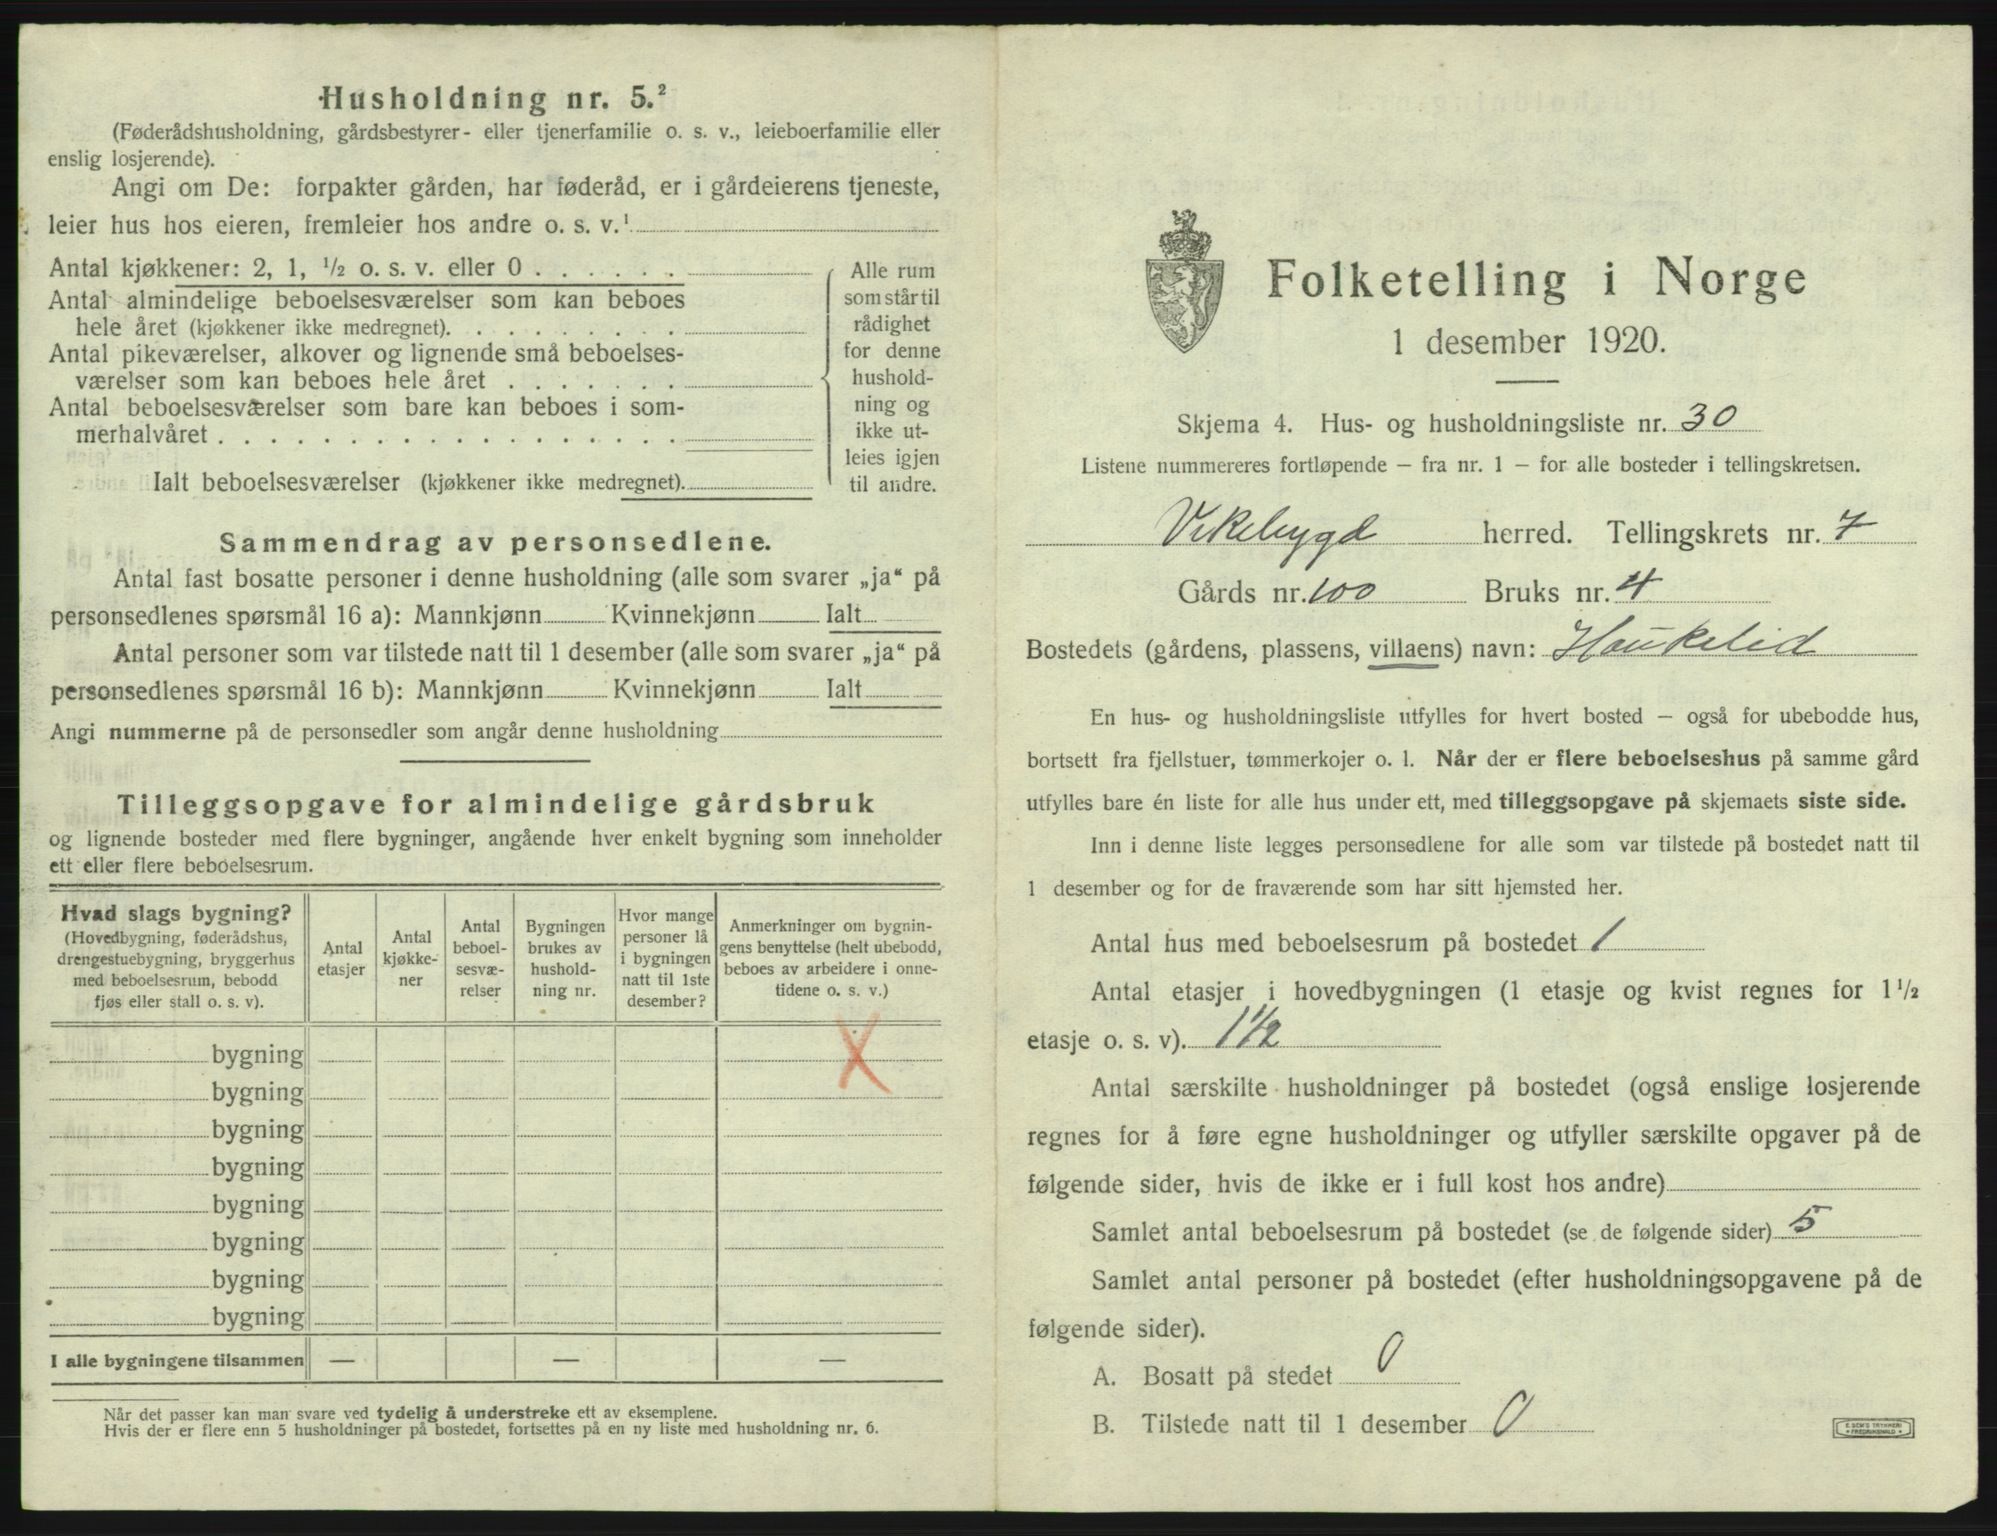 Husholdning nr. 5.²
(Føderådshusholdning, gårdsbestyrer- eller tjenerfamilie o. s. v., leieboerfamilie eller
enslig losjerende).
Angi om De: forpakter gården, har føderåd, er i gårdeierens tjeneste,
leier hus hos eieren, fremleier hos andre o. s. v.¹
Antal kjøkkener: 2, 1, ½ o. s. v. eller 0 . . . . . .
Antal almindelige beboelsesværelser som kan beboes
hele året (kjøkkener ikke medregnet). . . . . . . . .
Antal pikeværelser, alkover og lignende små beboelses-
værelser som kan beboes hele året . . . . . . .
Antal beboelsesværelser som bare kan beboes i som-
merhalvåret . . . . . . . . . . . . . . . . . .
Ialt beboelsesværelser (kjøkkener ikke medregnet).
Alle rum
som står til
rådighet
for denne
hushold-
ning og
ikke ut-
leies igjen
til andre.
Sammendrag av personsedlene.
Antal fast bosatte personer i denne husholdning (alle som svarer „ja“ på
personsedlenes spørsmål 16 a): Mannkjønn Kvinnekjønn Ialt
Antal personer som var tilstede natt til 1 desember (alle som svarer „ja“ på
personsedlenes spørsmål 16 b): Mannkjønn Kvinnekjønn Ialt
Angi nummerne på de personsedler som angår denne husholdning
Tilleggsopgave for almindelige gårdsbruk
og lignende bosteder med flere bygninger, angående hver enkelt bygning som inneholder
ett eller flere beboelsesrum.
Hvad slags bygning?
(Hovedbygning, føderådshus,
drengestuebygning, bryggerhus
med beboelsesrum, bebodd
fjøs eller stall o. s. v).
Antal
etasjer
Antal
kjøkke-
ner
Antal
beboel-
sesvæ-
relser
Bygningen
brukes av
hushold-
ning nr.
Hvor mange
personer lå
i bygningen
natt til 1ste
desember?
Anmerkninger om bygnin-
gens benyttelse (helt ubebodd,
beboes av arbeidere i onne-
tidene o. s. v.)
bygning X
bygning
bygning
bygning
bygning
bygning
bygning
bygning
I alle bygningene tilsammen — — —
Når det passer kan man svare ved tydelig å understreke ett av eksemplene.
Hvis der er flere enn 5 husholdninger på bostedet, fortsettes på en ny liste med husholdning nr. 6.
Folketelling i Norge
1 desember 1920.
Skjema 4. Hus- og husholdningsliste nr. 30
Listene nummereres fortløpende — fra nr. 1 — for alle bosteder i tellingskretsen.
Vikebygd herred. Tellingskrets nr. 7
Gårds nr. 100 Bruks nr. 4
Bostedets (gårdens, plassens, villaens) navn: Haukelid
En hus- og husholdningsliste utfylles for hvert bosted — også for ubebodde hus,
bortsett fra fjellstuer, tømmerkojer o. l. Når der er flere beboelseshus på samme gård
utfylles bare én liste for alle hus under ett, med tilleggsopgave på skjemaets siste side.
Inn i denne liste legges personsedlene for alle som var tilstede på bostedet natt til
1 desember og for de fraværende som har sitt hjemsted her.
Antal hus med beboelsesrum på bostedet 1
Antal etasjer i hovedbygningen (1 etasje og kvist regnes for 1½
etasje o. s. v). 1½
Antal særskilte husholdninger på bostedet (også enslige losjerende
regnes for å føre egne husholdninger og utfyller særskilte opgaver på de
følgende sider, hvis de ikke er i full kost hos andre)
Samlet antal beboelsesrum på bostedet (se de følgende sider) 5
Samlet antal personer på bostedet (efter husholdningsopgavene på de
følgende sider).
A. Bosatt på stedet 0
B. Tilstede natt til 1 desember 0
E. SEM'S TRYKKERI
FREDRIKSHALD